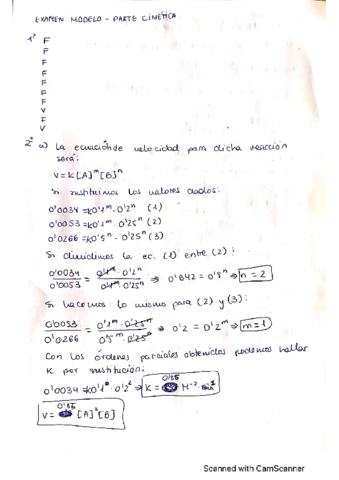 EXAMEN MODELO - PARTE CINÉTICA
1º F
F
F
F
F
F
F
V
F
V
2º a) La ecuación de velocidad para dicha reacción
será:
V = K[A]^m [B]^n
Si sustituimos los valores dados:
0'0034 = K0'1^m · 0'2^n (1)
0'0053 = K0'1^m · 0'25^n (2)
0'0266 = K0'5^m · 0'25^n (3)
Si dividimos la ec. (1) entre (2):
0'0034 / 0'0053 = 0'1^m · 0'2^n / 0'1^m · 0'25^n ⇒ 0'642 = 0'8^n ⇒ n = 2
Si hacemos lo mismo para (2) y (3):
0'0053 / 0'0266 = 0'1^m · 0'25^n / 0'5^m · 0'25^n ⇒ 0'2 = 0'2^m ⇒ m = 1
Con los órdenes parciales obtenidos podemos hallar
K por sustitución:
0'0034 = K0'1 · 0'2² ⇒ K = 0'85 M^-2
V = [A]²[B]
Scanned with CamScanner